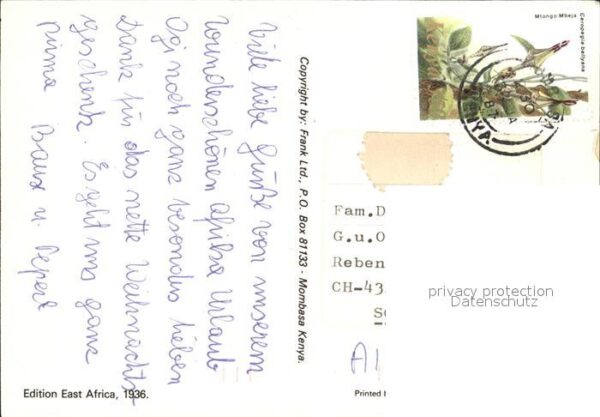 Viele liebe Grüße von unserem
wunderschönen Afrika Urlaub
noch ganz besonders lieben
Dank für das nette Weihnachts
geschenk. Es geht uns ganz
prima
Copyright by: Frank Ltd., P.O. Box 81133 - Mombasa Kenya.
Edition East Africa, 1936.
Mtongo Mbeja
Ceropegia ballyana
Fam.D
G.u.O
Reben
CH-43
privacy protection
Datenschutz
Printed